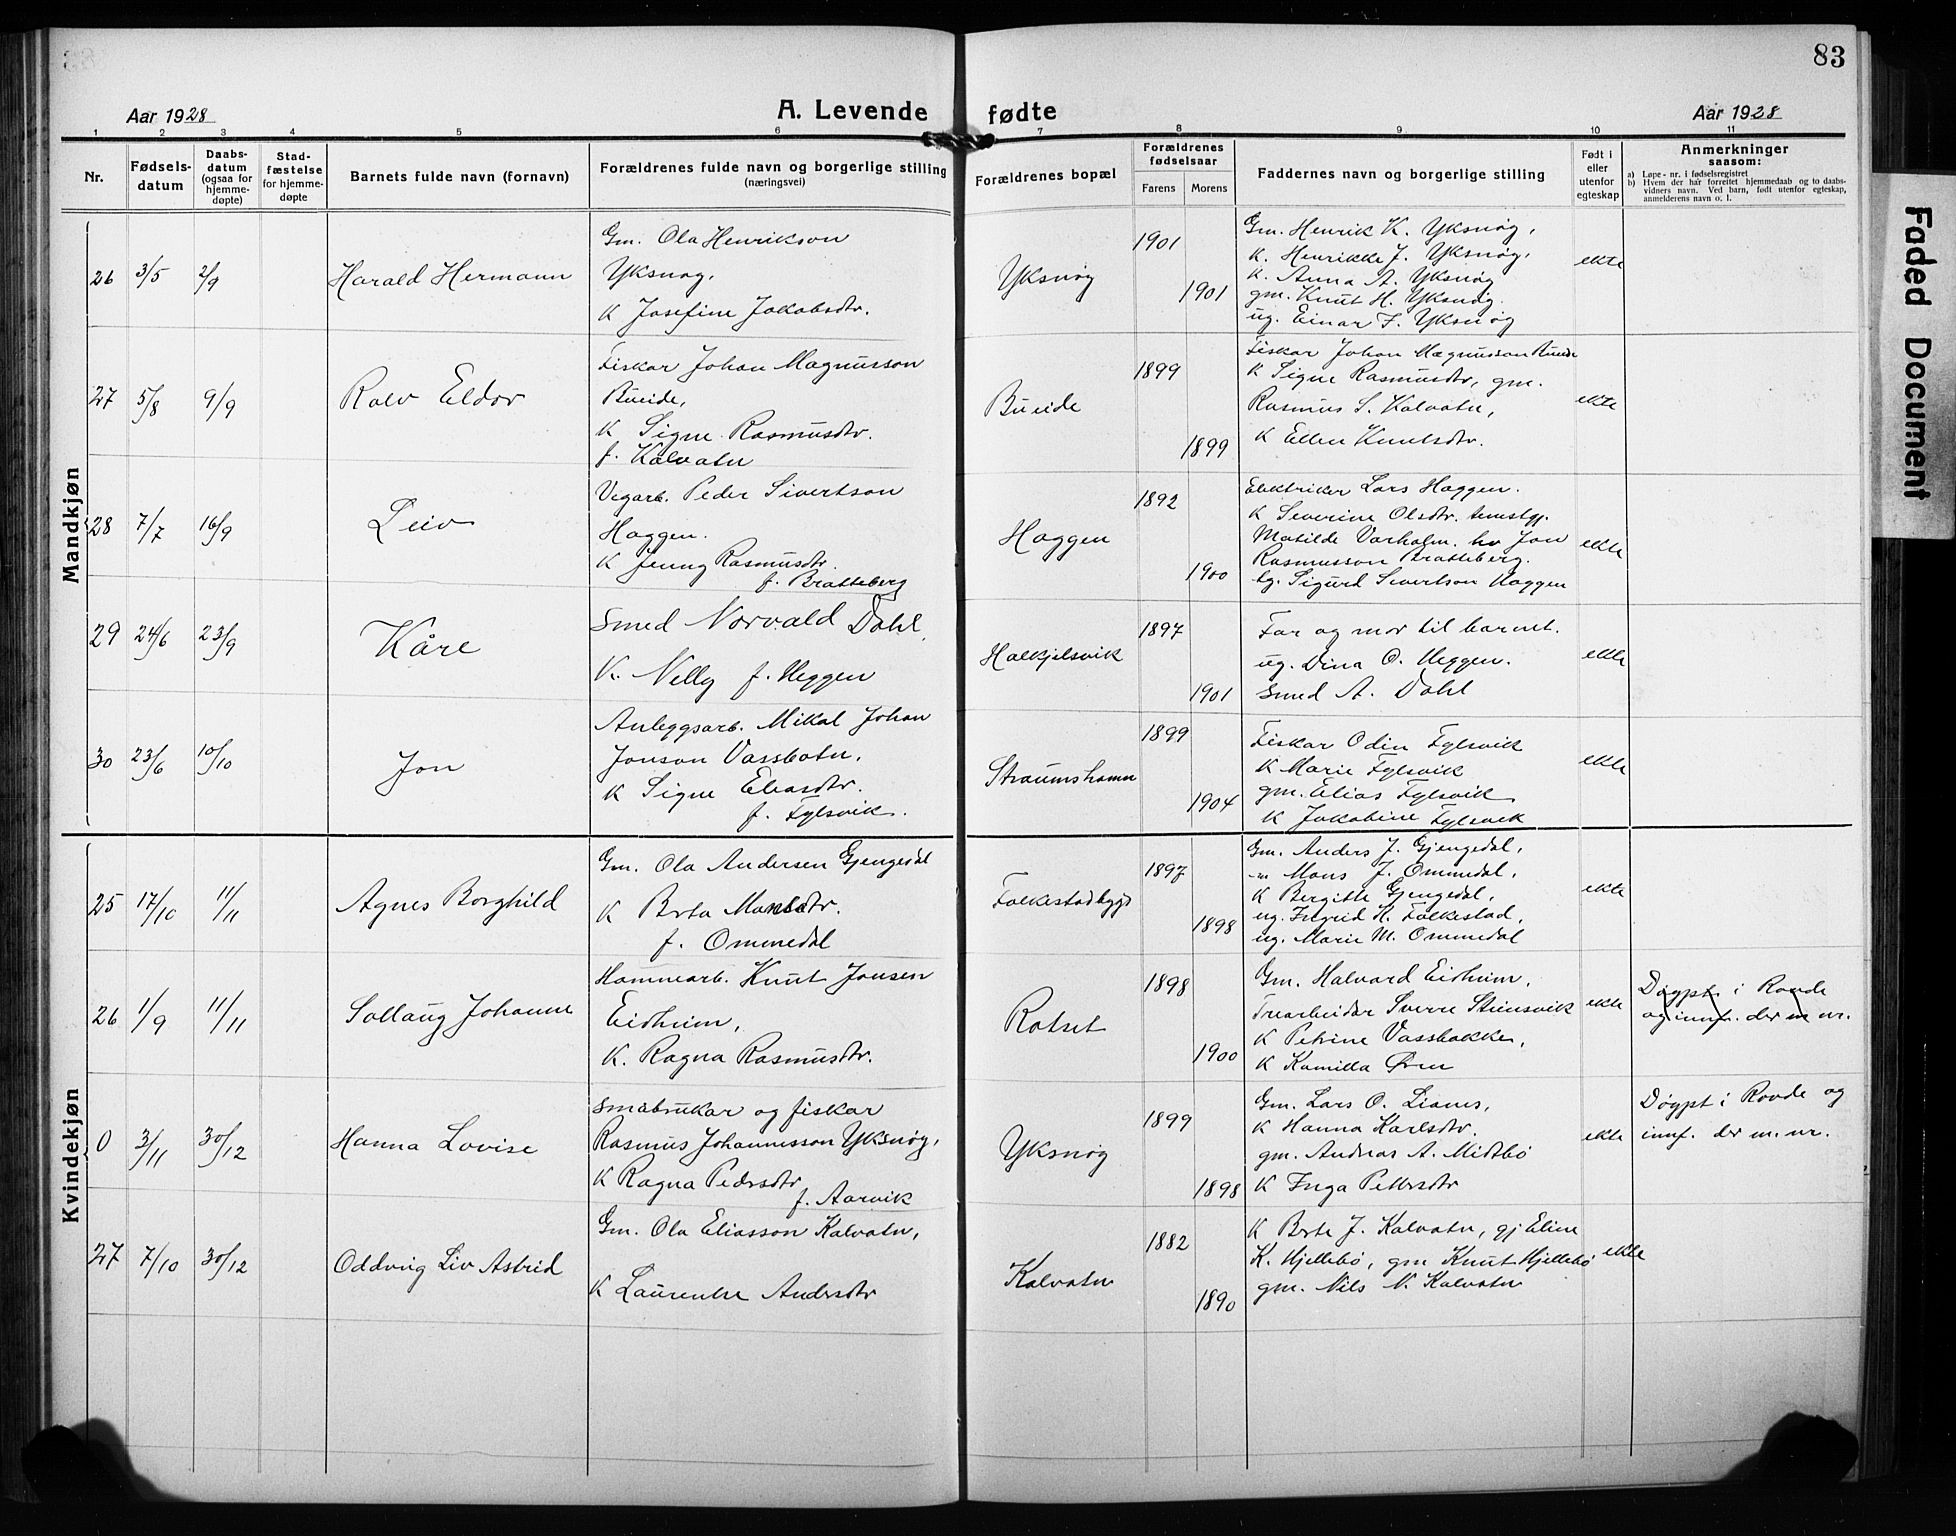 83
Aar 1928
A. Levende fødte
Aar 1928
1 2 3 4 5 6 7 8 9 10 11
Nr.
Fødsels-
datum
Daabs-
datum
(ogsaa for
hjemme-
døpte)
Stad-
fæstelse
for hjemme-
døpte
Barnets fulde navn (fornavn)
Forældrenes fulde navn og borgerlige stilling
(næringsvei)
Forældrenes bopæl
Forældrenes
fødselsaar
Farens
Morens
Faddernes navn og borgerlige stilling
Født i
eller
utenfor
egteskap
Anmerkninger
saasom:
a) Løpe-nr. i fødselsregistret
b) Hvem der har forrettet hjemmedaab og to daabs-
vidners navn. Ved barn, født utenfor egteskap,
anmelderens navn o. l.
Mandkjøn
26 3/5 2/9
Harald Hermann
Gm. Ola Henrikson
Yksnøg,
K Josefine Jakobsdtr.
Yksnøg
1901
1901
Gm. Henrik K. Yksnøg,
K. Henrikke J. Yksnøg,
K. Anna A. Yksnøg
gm. Knut H. Yksnøg.
ug. Einar F. Yksnøg
ekte
27 5/8 9/9
Rolv Eldor
Fiskar Johan Magnusson
Bueide,
K Signe Rasmusdtr.
f. Kalvatn
Bueide
1899
1899
Fiskar Johan Magnusson Bueide
K Signe Rasmusdtr, gm.
Rasmus S. Kalvatn,
K Ellen Knutsdtr.
ekte
28 7/7 16/9
Leiv
Vegarb. Peder Sivertson
Haggen.
K Jenny Rasmusdtr.
f. Bratteberg
Haggen
1892
1900
Elektriker Lars Haggen.
K Severine Olsdtr. tenestgj.
Matilde Varholm. hv Jon
Rasmusson Bratteberg.
bg. Sigurd Sivertson Haggen
ekte
29 24/6 23/9
Kåre
Smed Norvald Dahl,
K. Nelly f. Heggen
Halkjelsvik
1897
1901
Far og mor til barnet.
ug. Dina O. Heggen.
Smed A. Dahl
ekte
30 23/6 10/10
Jon
Anleggsarb. Mikal Johan
Jonson Vassbotn,
K Signe Eliasdtr.
f. Fylsvik.
Straumshamn
1899
1904
Fiskar Odin Fylsvik
K Marie Fylsvik
gm. Elias Fylsvik
K Jakobine Fylsvik
ekte
Kvindekjøn
25 17/10 11/11
Agnes Borghild
Gm. Ola Andersen Gjengedal
K Brta Monsdtr.
f. Ommedal
Folkestadbygd
1897
1898
Gm. Anders J. Gjengedal,
" Mons J. Ommedal,
K Bergitte Gjengedal,
ug. Ingrid K. Folkestad,
ug. Marie M. Ommedal
ekte
26 1/9 11/11
Sollaug Johanne
Hamnearb. Knut Jonsen
Eidheim,
K. Ragna Rasmusdtr.
Rotset
1898
1900
Gm. Halvard Eidheim,
Trearbeidar Sverre Steinsvik
K Petrine Vassbakke,
K Kamilla Øren
ekte
Døypt i Rovde
og innf. der m nr.
0 3/11 30/12
Hanna Lovise
Småbrukar og fiskar
Rasmus Johannesson Yksnøg,
K Ragna Pedersdtr
f. Aarvik
Yksnøg
1899
1898
Gm. Lars O. Lianes,
K Hanna Karlsdtr.
gm. Andreas A. Midtbø
K Inga Pettersdtr
ekte
Døypt i Rovde og
innf. der m. nr.
27 7/10 30/12
Oddvig Liv Astrid
Gm. Ola Eliasson Kalvatn,
K Laurentse Andersdtr
Kalvatn
1882
1890
K Brte J. Kalvatn, gj Eline
K. Hjellebø, gm Knut Hjellebø
gm. Nils N. Kalvatn
ekte
Faded Document